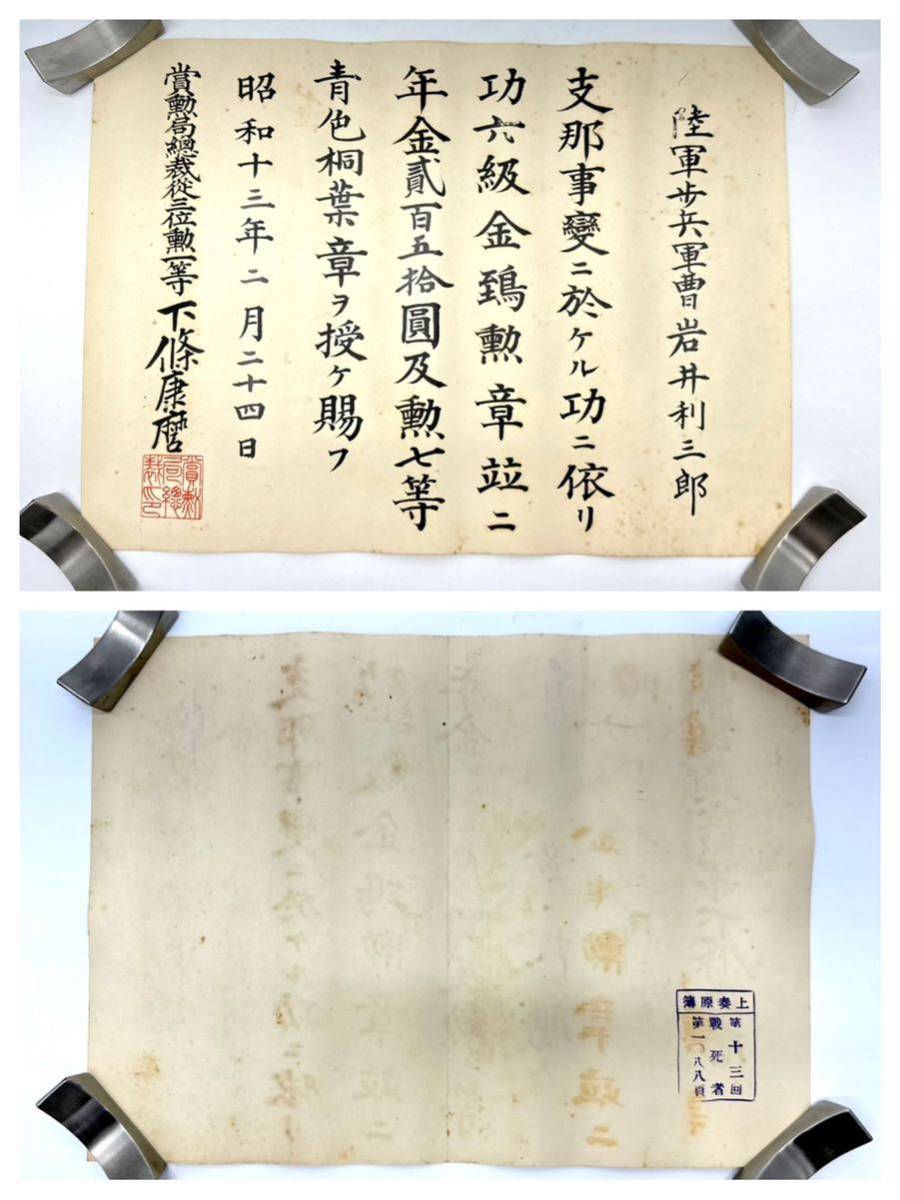 陸軍步兵軍曹岩井利三郎
支那事變ニ於ケル功ニ依リ
功六級金鵄勲章竝ニ
年金貳百五拾圓及勲七等
青色桐葉章ヲ授ケ賜フ
昭和十三年二月二十四日
賞勲局總裁從三位勲一等下條康麿
賞勲局總裁印
上奏原簿
第十三回
戰死者
第一〇八八頁